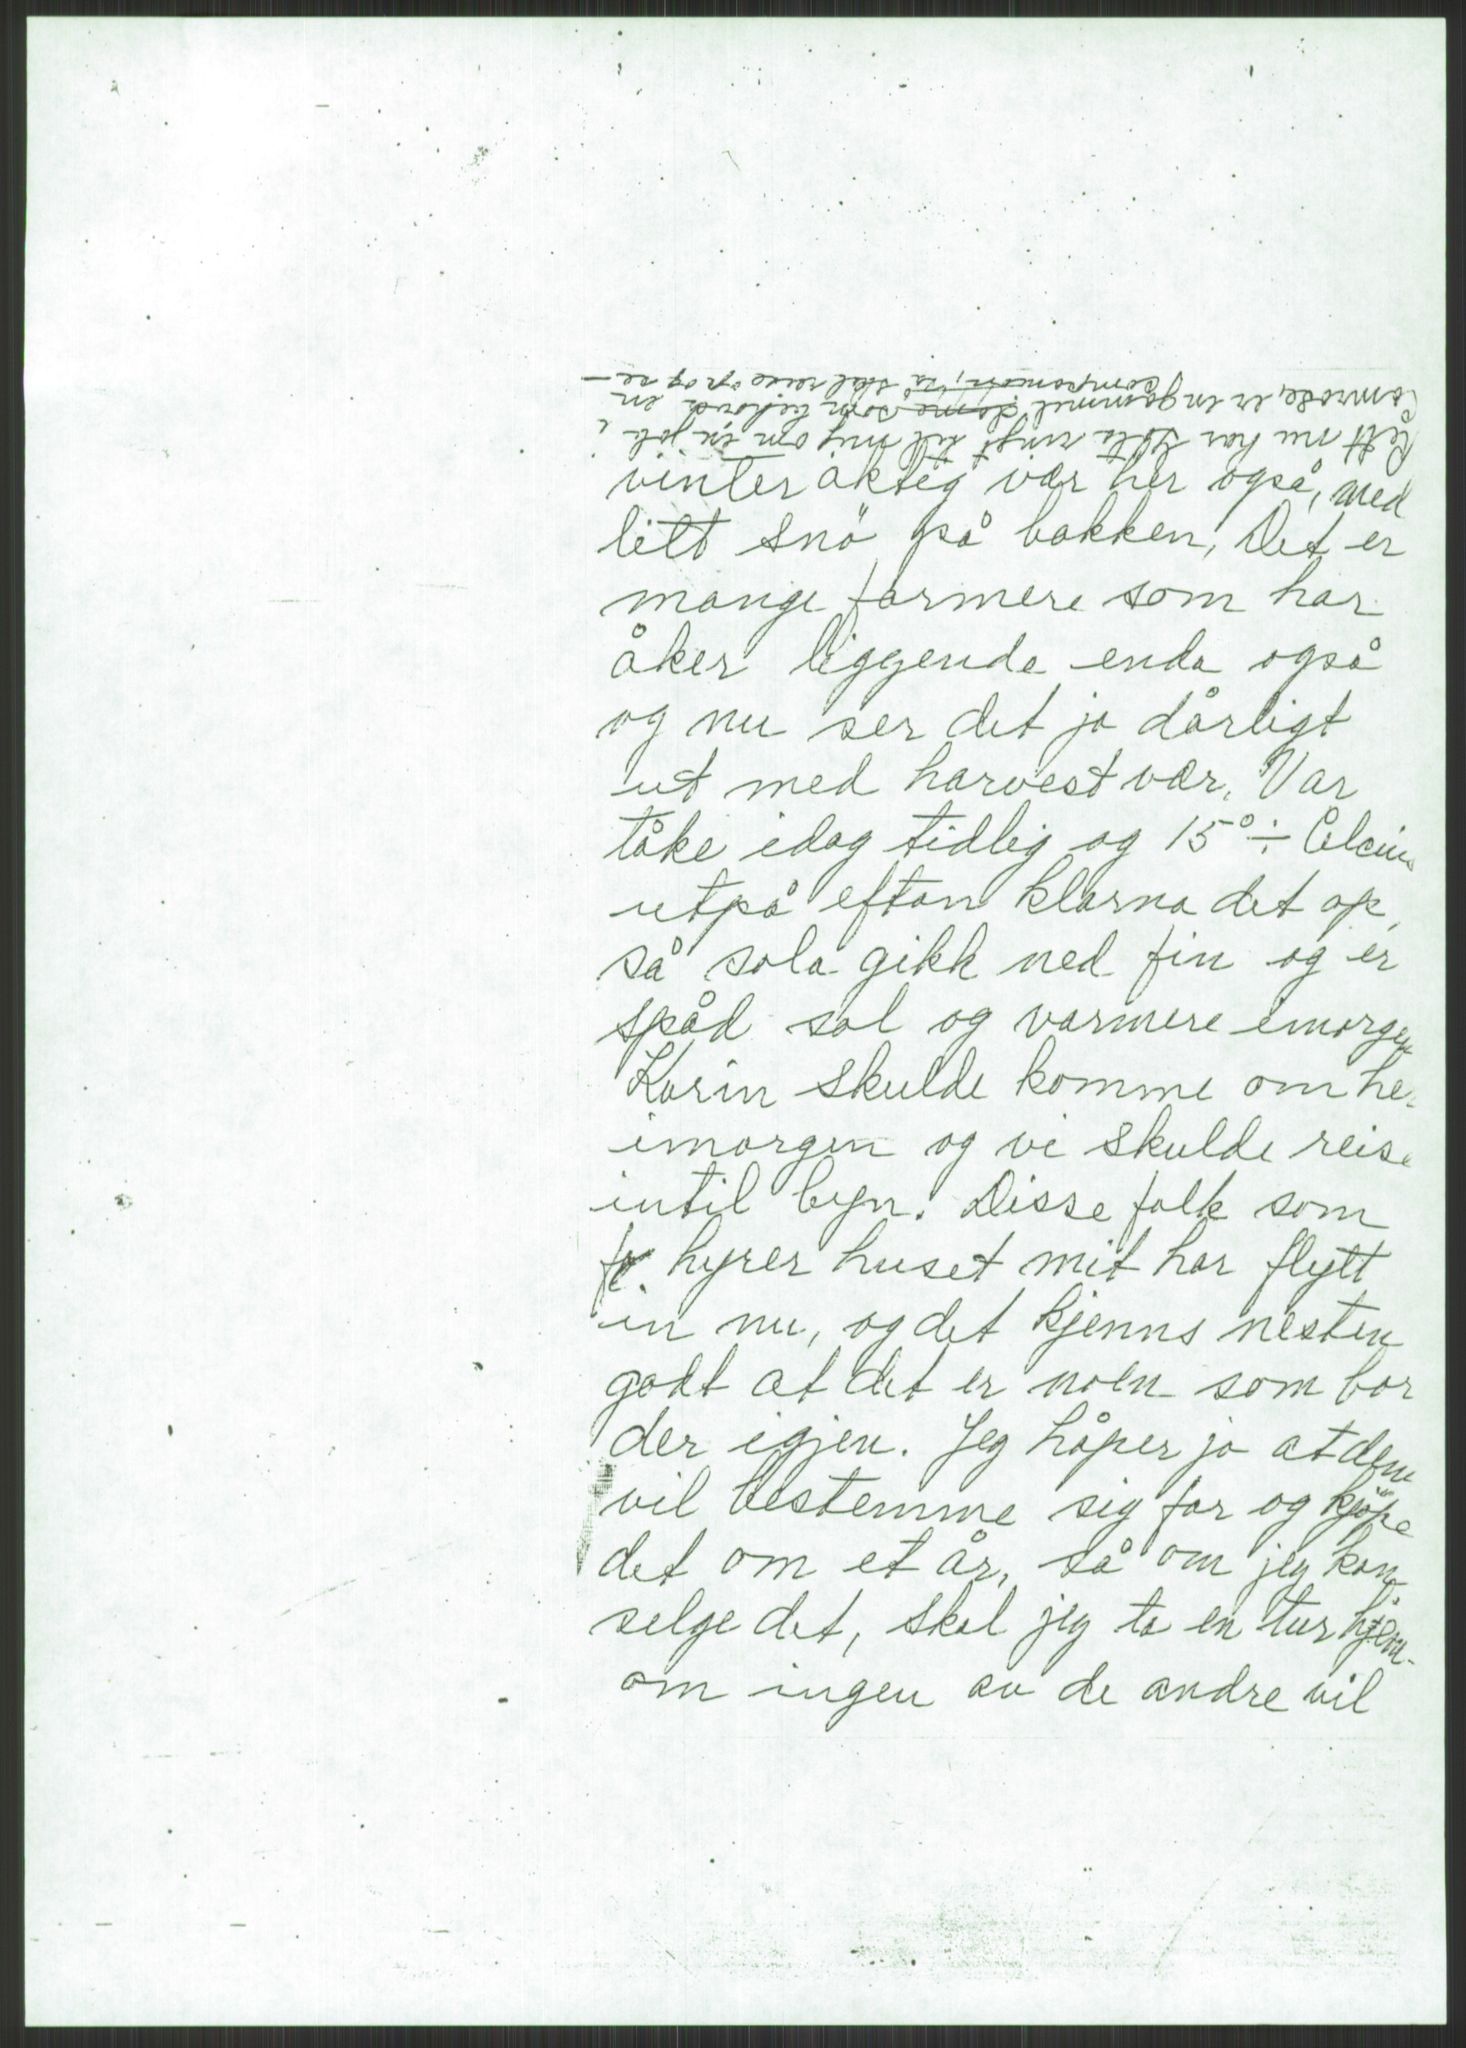 vinteraktig vær her også, med
litt snö på bakken, Det er
mange farmere som har
åker liggende enda også
og nu ser det jo dårligt
ut med harvest vær, Var
tåke idag tidlig og 15° ÷ Celcius
utpå eftan klarna det op,
så sola gikk ned fin og er
spåd sol og varmere imorgen
Karin skulde komme om he
imorgen og vi skulde reise
intil byn. Disse folk som
hyrer huset mit har flytt
in nu, og det kjenns nesten
godt at det er noen som bor
der igjen. Jeg håper jo at dem
vil bestemme sig for og kjöpe
det om et år, så om jeg kan
selge det, skal jeg ta en tur hjem.
om ingen av de andre vil
Rett nu har ringt til mig om en job i
Camrose, er en gammel dame som behöver en
companion, så skal reise op og se—